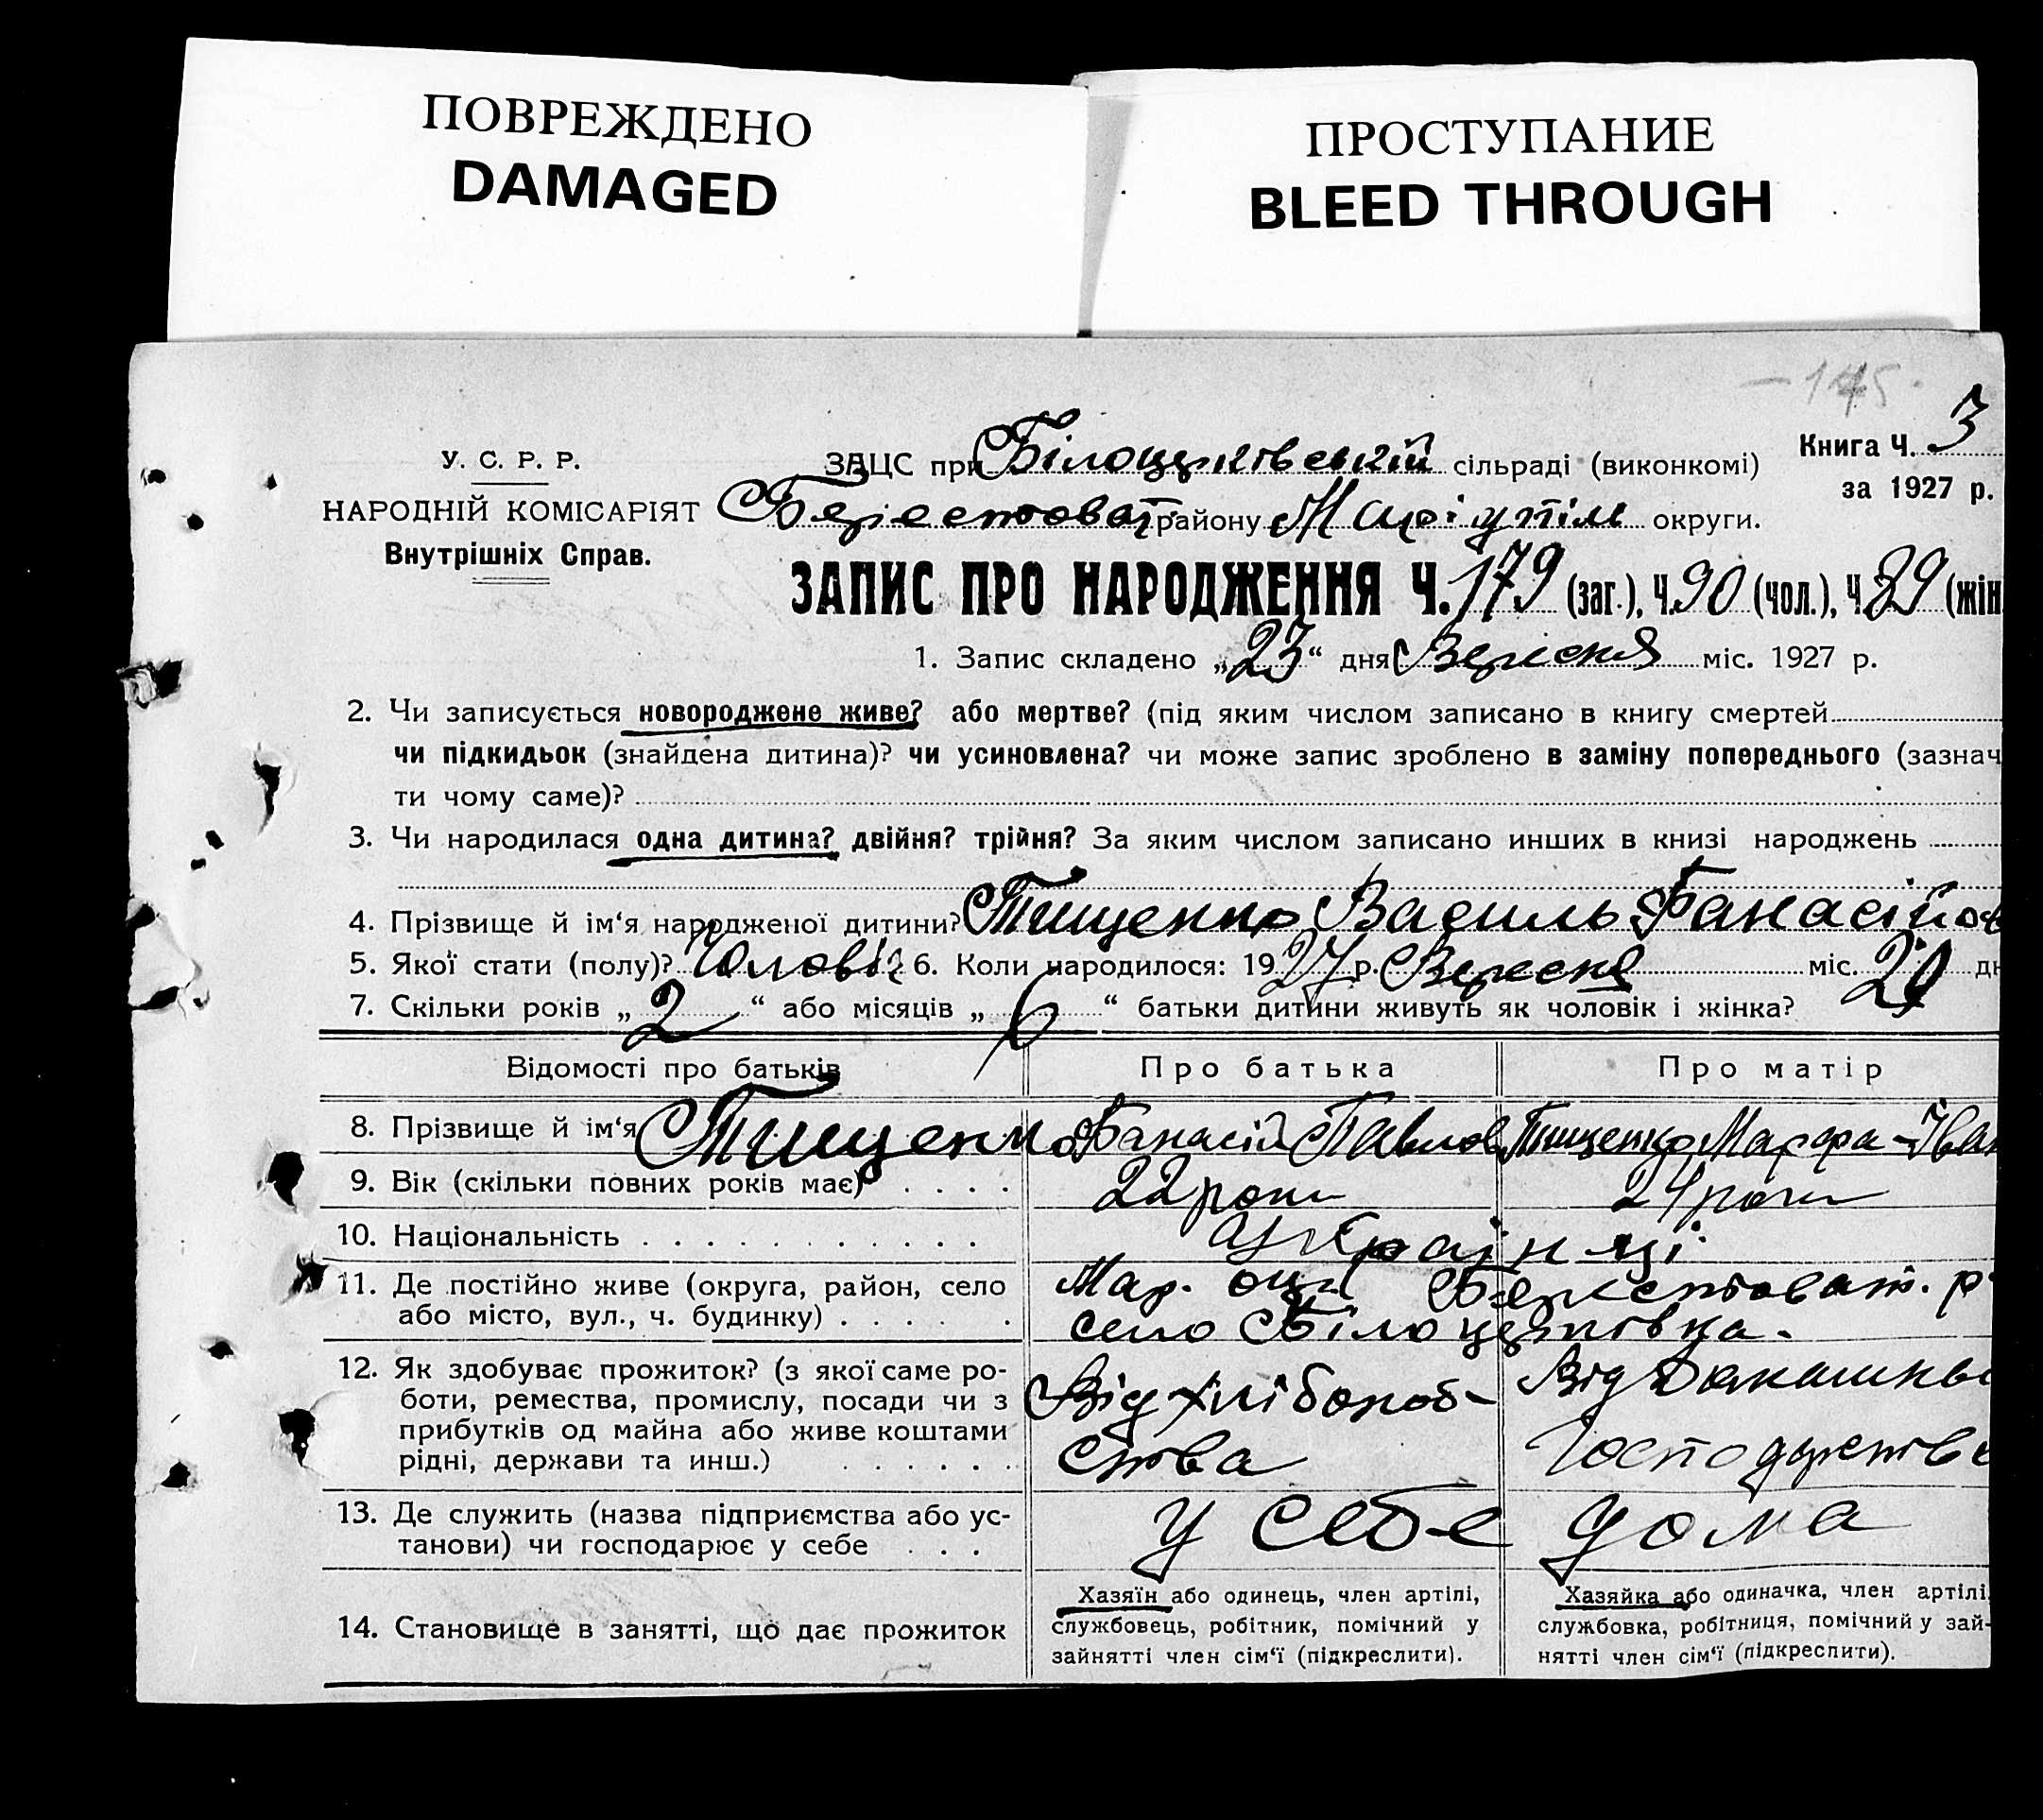 ПОВРЕЖДЕНО
DAMAGED
ПРОСТУПАНИЕ
BLEED THROUGH
145
У. С. Р. Р.
НАРОДНІЙ КОМІСАРІЯТ
Внутрішніх Справ.
ЗАЦС при Білоцерківській сільраді (виконкомі)
Книга Ч. 3
за 1927 р.
Берестоват. району Маріупіль округи.
ЗАПИС ПРО НАРОДЖЕННЯ Ч. 179 (заг.), Ч. 90 (чол.), Ч. 89 (жін
1. Запис складено „23“ дня Вересня міс. 1927 р.
2. Чи записується новороджене живе? або мертве? (під яким числом записано в книгу смертей
чи підкидьок (знайдена дитина)? чи усиновлена? чи може запис зроблено в заміну попереднього (зазнач
ти чому саме)?
3. Чи народилася одна дитина? двійня? трійня? За яким числом записано инших в книзі народжень
4. Прізвище й ім‘я народженої дитини? Тищенко Василь Панасійов
5. Якої стати (полу)? Чолові 6. Коли народилося: 1927 р. Вересня міс. 20 дн
7. Скільки років „2“ або місяців „6“ батьки дитини живуть як чоловік і жінка?
Відомості про батьків
Про батька
Про матір
8. Прізвище й ім‘я Тищенко Панасій Павлов Тищенко Марфа Іван
9. Вік (скільки повних років має) 22 роки 24 роки
10. Національність Українці
11. Де постійно живе (округа, район, село
або місто, вул., ч. будинку)
Мар. окр Берестоват. р
село Білоцерківка.
12. Як здобуває прожиток? (з якої саме ро-
боти, ремества, промислу, посади чи з
прибутків од майна або живе коштами
рідні, держави та инш.)
Від хліборобства
Від Домашнь
Господарства
13. Де служить (назва підприємства або ус-
танови) чи господарює у себе
у себе дома
14. Становище в занятті, що дає прожиток
Хазяїн або одинець, член артілі,
службовець, робітник, помічний у
зайнятті член сім‘ї (підкреслити).
Хазяйка або одиначка, член артілі,
службовка, робітниця, помічний у зай-
нятті член сім‘ї (підкреслити).